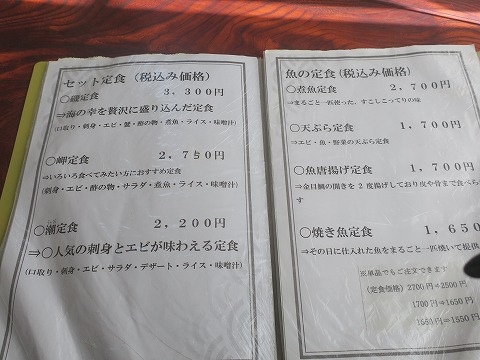 セット定食 (税込み価格)
○磯定食 3,300円
⇒海の幸を贅沢に盛り込んだ定食
(口取り・刺身・エビ・蟹・酢の物・煮魚・ライス・味噌汁)
○岬定食 2,750円
⇒いろいろ食べてみたい方におすすめ定食
(刺身・エビ・酢の物・サラダ・煮魚・ライス・味噌汁)
○潮定食 2,200円
⇒○人気の刺身とエビが味わえる定食
(口取り・刺身・エビ・サラダ・デザート・ライス・味噌汁)
魚の定食(税込み価格)
○煮魚定食 2,700円
⇒まるごと一匹使った、すこしこってりの味
○天ぷら定食 1,700円
⇒エビ・魚・野菜の天ぷら定食
○魚唐揚げ定食 1,700円
⇒金目鯛の開きを2度揚げしており皮や骨まで食べら
す
○焼き魚定食 1,650
⇒その日に仕入れた魚をまるごと一匹焼いて提供
※単品でもご注文できます
(定食価格) 2700円⇒2500円
1700円⇒1650円
1650円⇒1550円